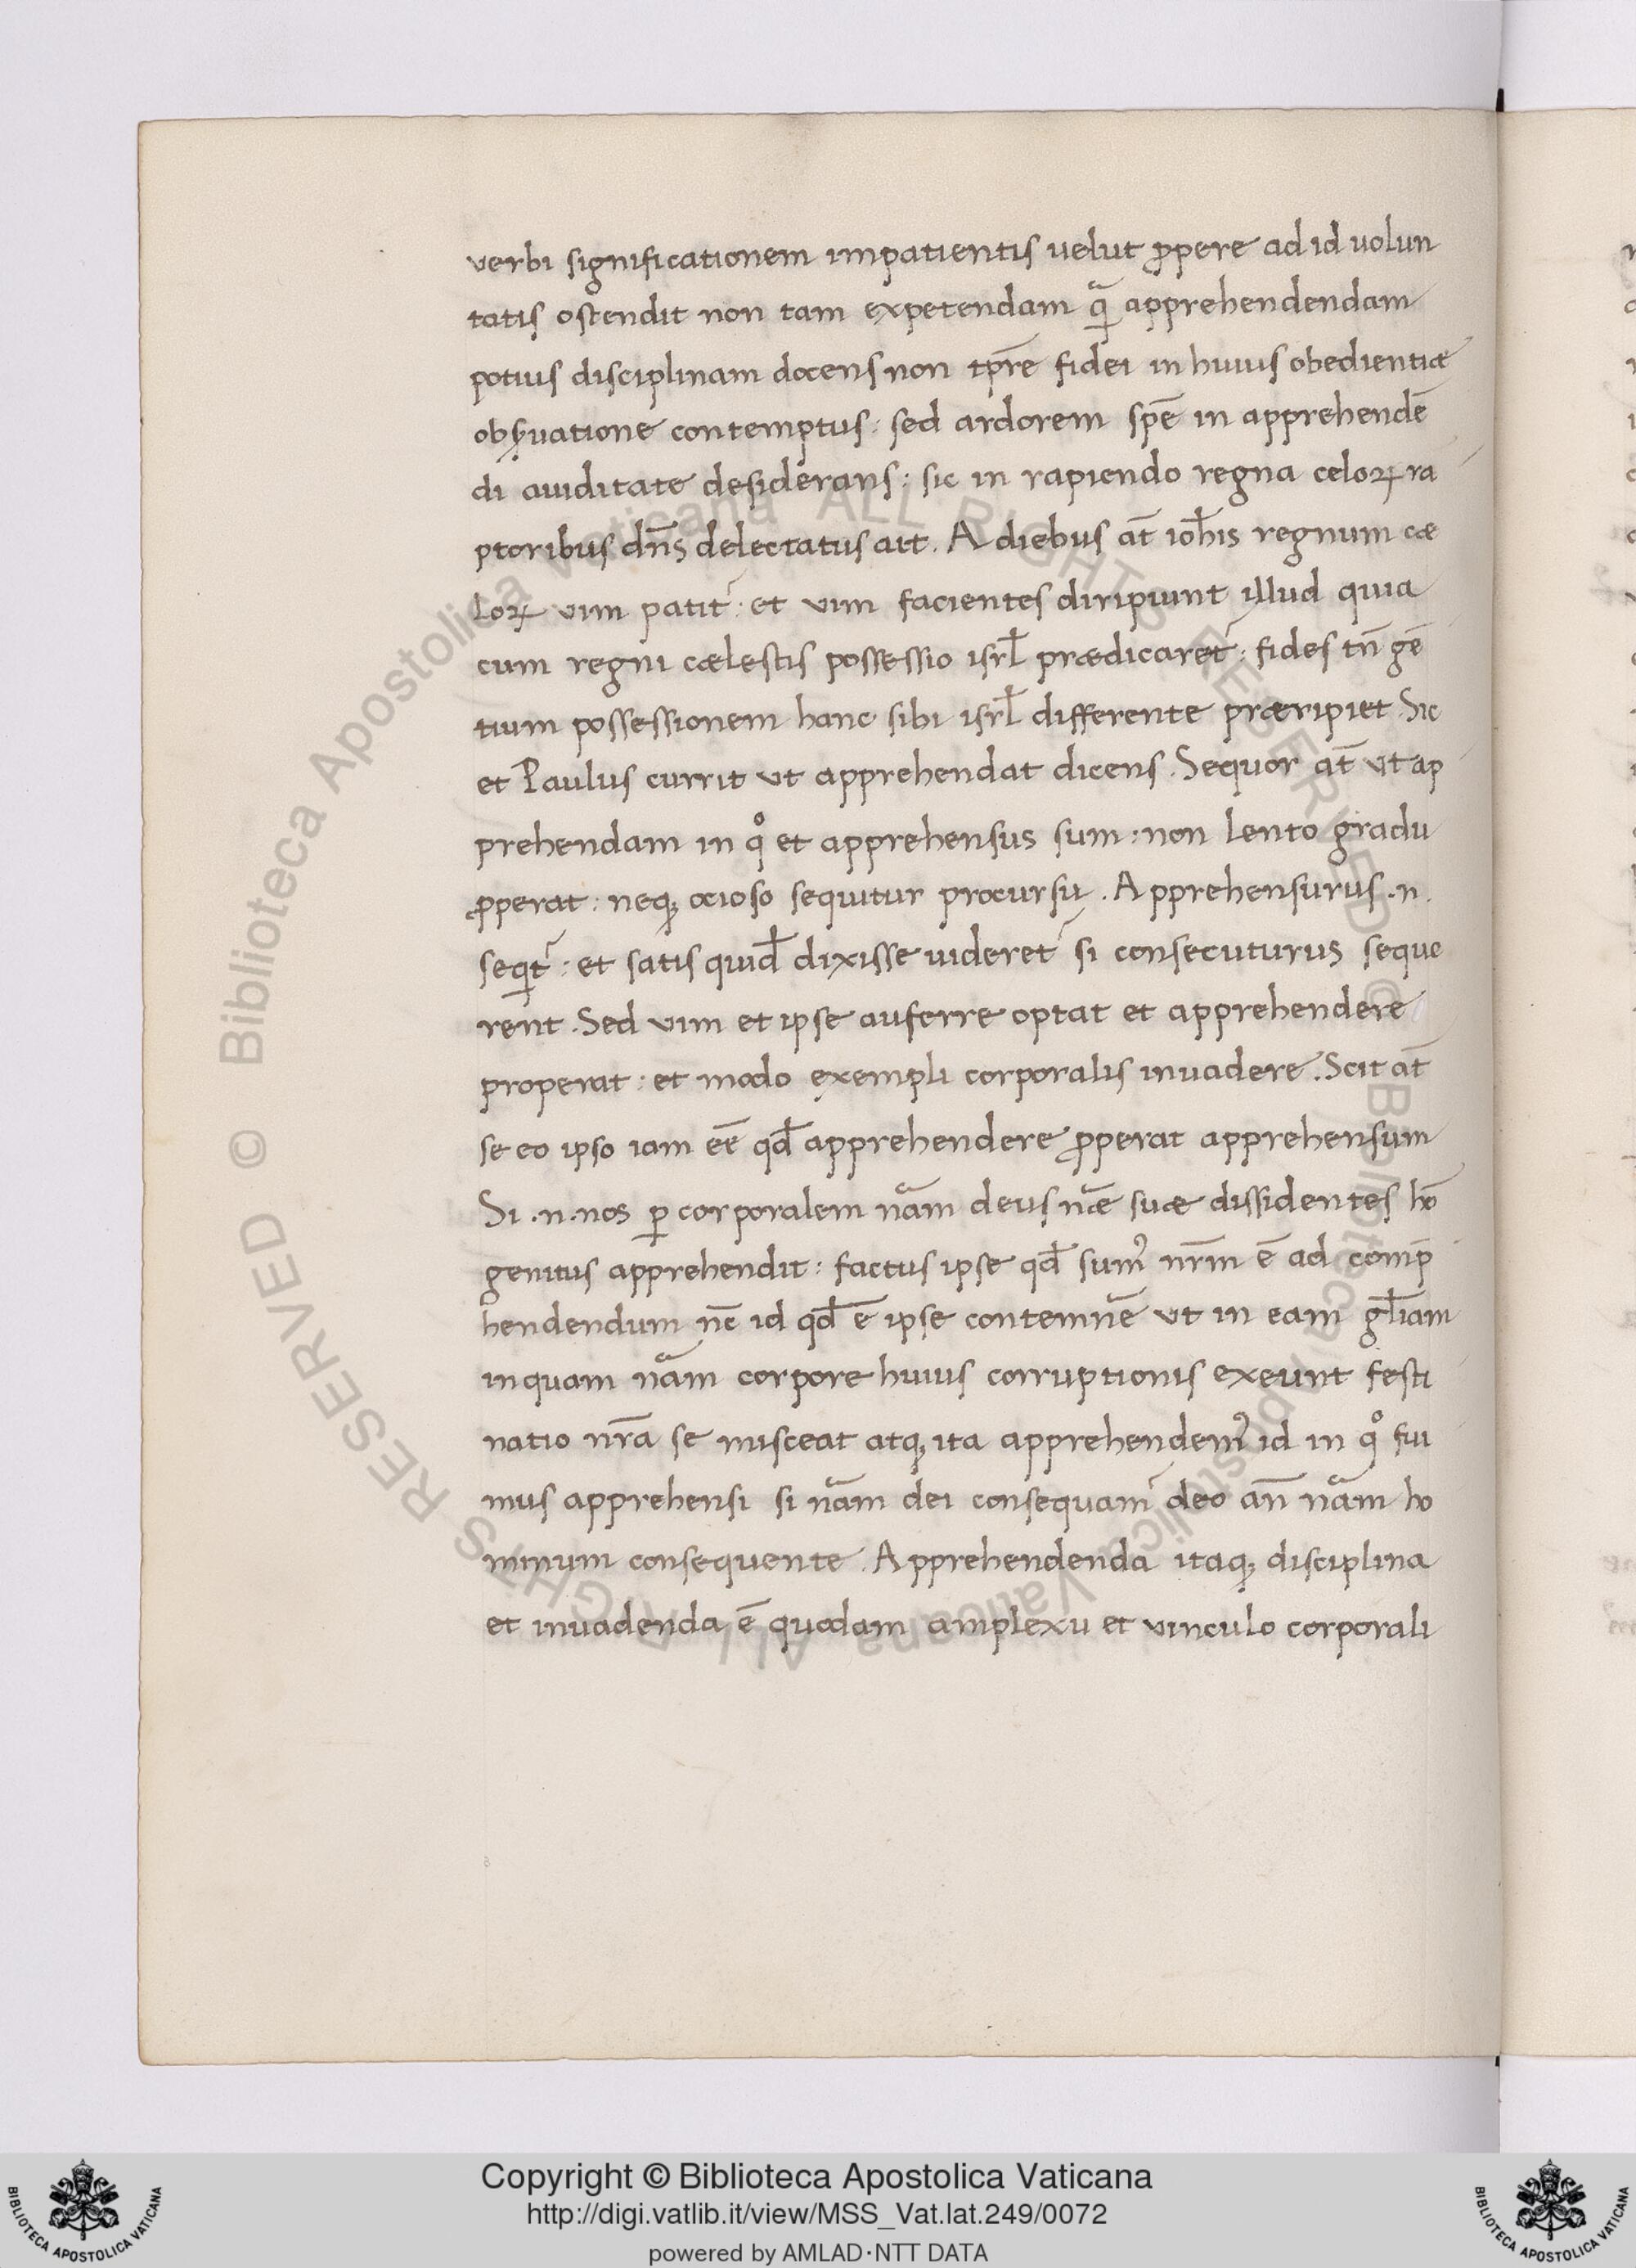 verbi significationem impatientis uelut ꝓpere ad id uolun
tatis ostendit non tam expetendam ꝗ̃ apprehendendam
potius disciplinam docens non tp̄re fidei in huius obedientiæ
obẜuatione contemptus: sed ardorem spē in apprehendē
di auiditate desiderans: sic in rapiendo regna celoꝝ ra
ptoribus dn̄s delectatus ait. A diebus at̄ ioh̄is regnum cæ
loꝝ vim patit᷑: et vim facientes diripiunt illud quia
cum regni cælestis possessio isrł prædicaret᷑: fides tn̄ gē
tium possessionem hanc sibi isrł differente præripiet. Sic
et Paulus currit vt apprehendat dicens. Sequor at̄ vt ap
prehendam in qͦ et apprehensus sum: non lento gradu
ꝓperat: neqꝫ ocioso sequitur procursu. Apprehensurus .n.
seqt᷑: et satis quid̄ dixisse uideret᷑ si consecuturus seque
rent. Sed vim et ipse auferre optat et apprehendere
properat: et modo exempli corporalis inuadere. Scit at̄
se eo ipso iam eē qd̄ apprehendere ꝓperat apprehensum
Si .n. nos ꝑ corporalem nãm deus nãe suæ dissidentes hō
genitus apprehendit: factus ipse qd̄ sumꝰ nr̄m ē ad comp̄
hendendum nc̄ id qd̄ ē ipse contemnē vt in eam gl̄iam
in quam nãm corpore huius corruptionis exeunt festi
natio nr̄a se misceat atqꝫ ita apprehendemꝰ id in qͦ fui
mus apprehensi si nãm dei consequam᷑ deo an̄ nãm ho
minum consequente. Apprehendenda itaqꝫ disciplina
et inuadenda ē quodam amplexu et vinculo corporali
Biblioteca Apostolica Vaticana ALL RIGHTS RESERVED ©
Biblioteca Apostolica Vaticana ALL RIGHTS RESERVED ©
Copyright © Biblioteca Apostolica Vaticana
http://digi.vatlib.it/view/MSS_Vat.lat.249/0072
powered by AMLAD·NTT DATA
BIBLIOTECA APOSTOLICA VATICANA
BIBLIOTECA APOSTOLICA VATICANA